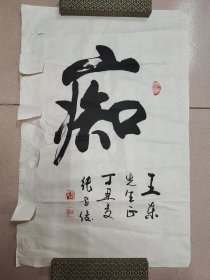 痴
王东
先生正
丁丑夏
张